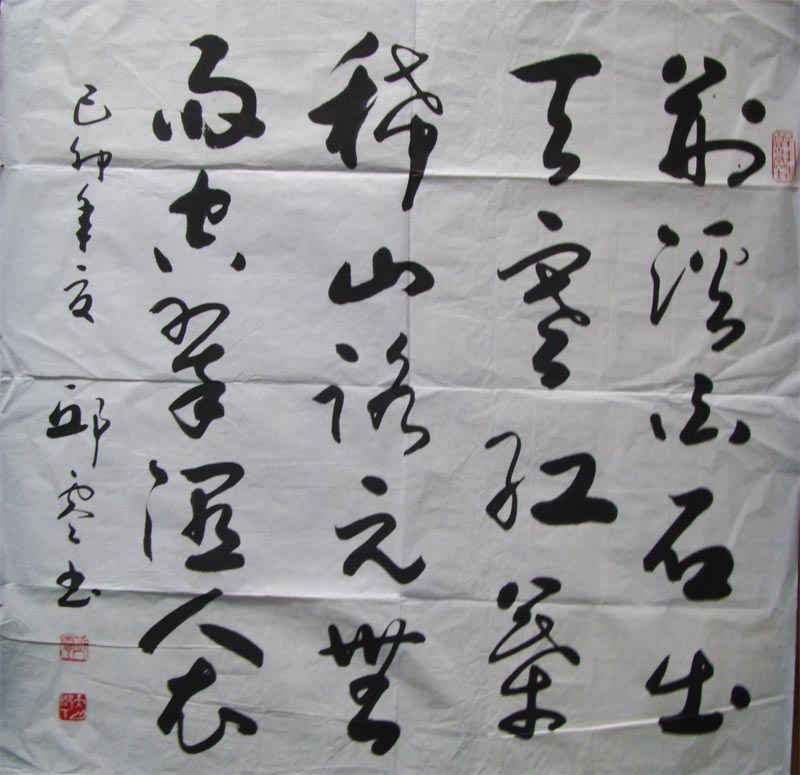 荆溪白石出
天寒红葉
稀山路元無
雨空翠湿人衣
己卯年夏 邱 书